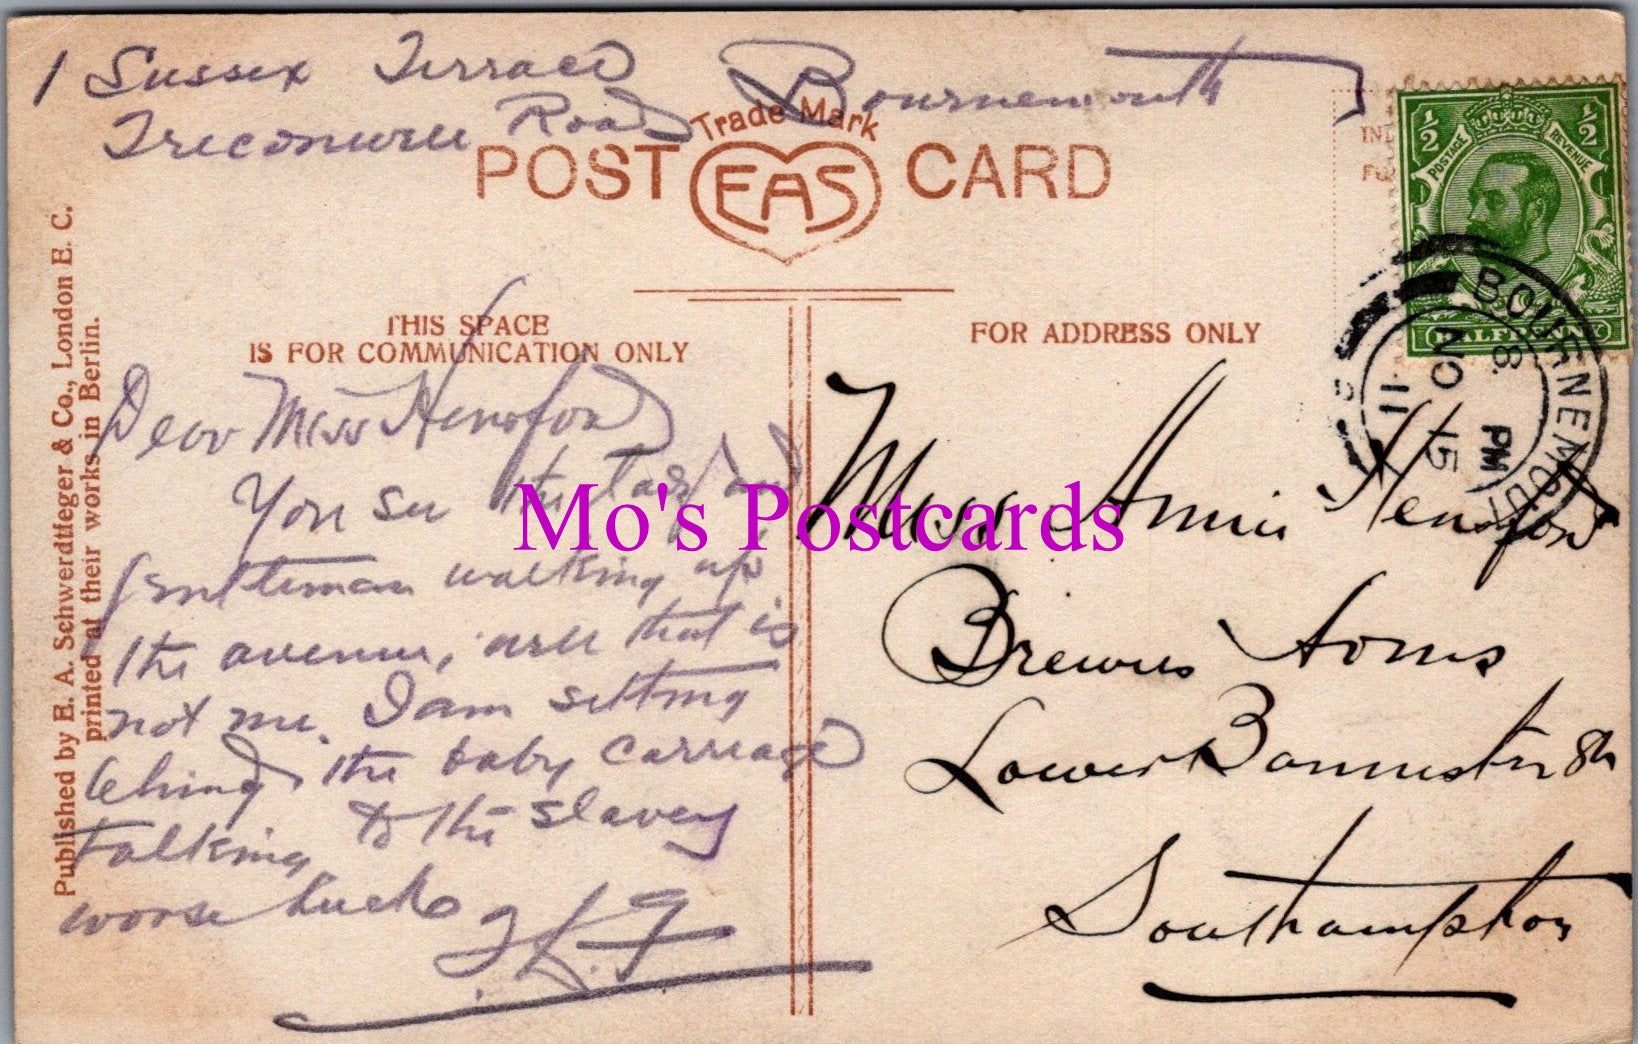 1 Sussex Terrace Bournemouth
Road
Trade Mark
POST EAS CARD
THIS SPACE
IS FOR COMMUNICATION ONLY
FOR ADDRESS ONLY
Published by E. A. Schwerdtfeger & Co., London E. C.
printed at their works in Berlin.
Dear Miss Hensford
You see the Lady and
gentleman walking up
the avenue, well that is
not me. I am sitting
behind the baby carriage
talking to the slavey
worse luck
Miss Annie Hensford
Brewers Arms
Lower Bannister St
Southampton
½ ½
POSTAGE REVENUE
HALFPENNY
BOURNEMOUTH
8. PM
NO 15
11
Mo's Postcards